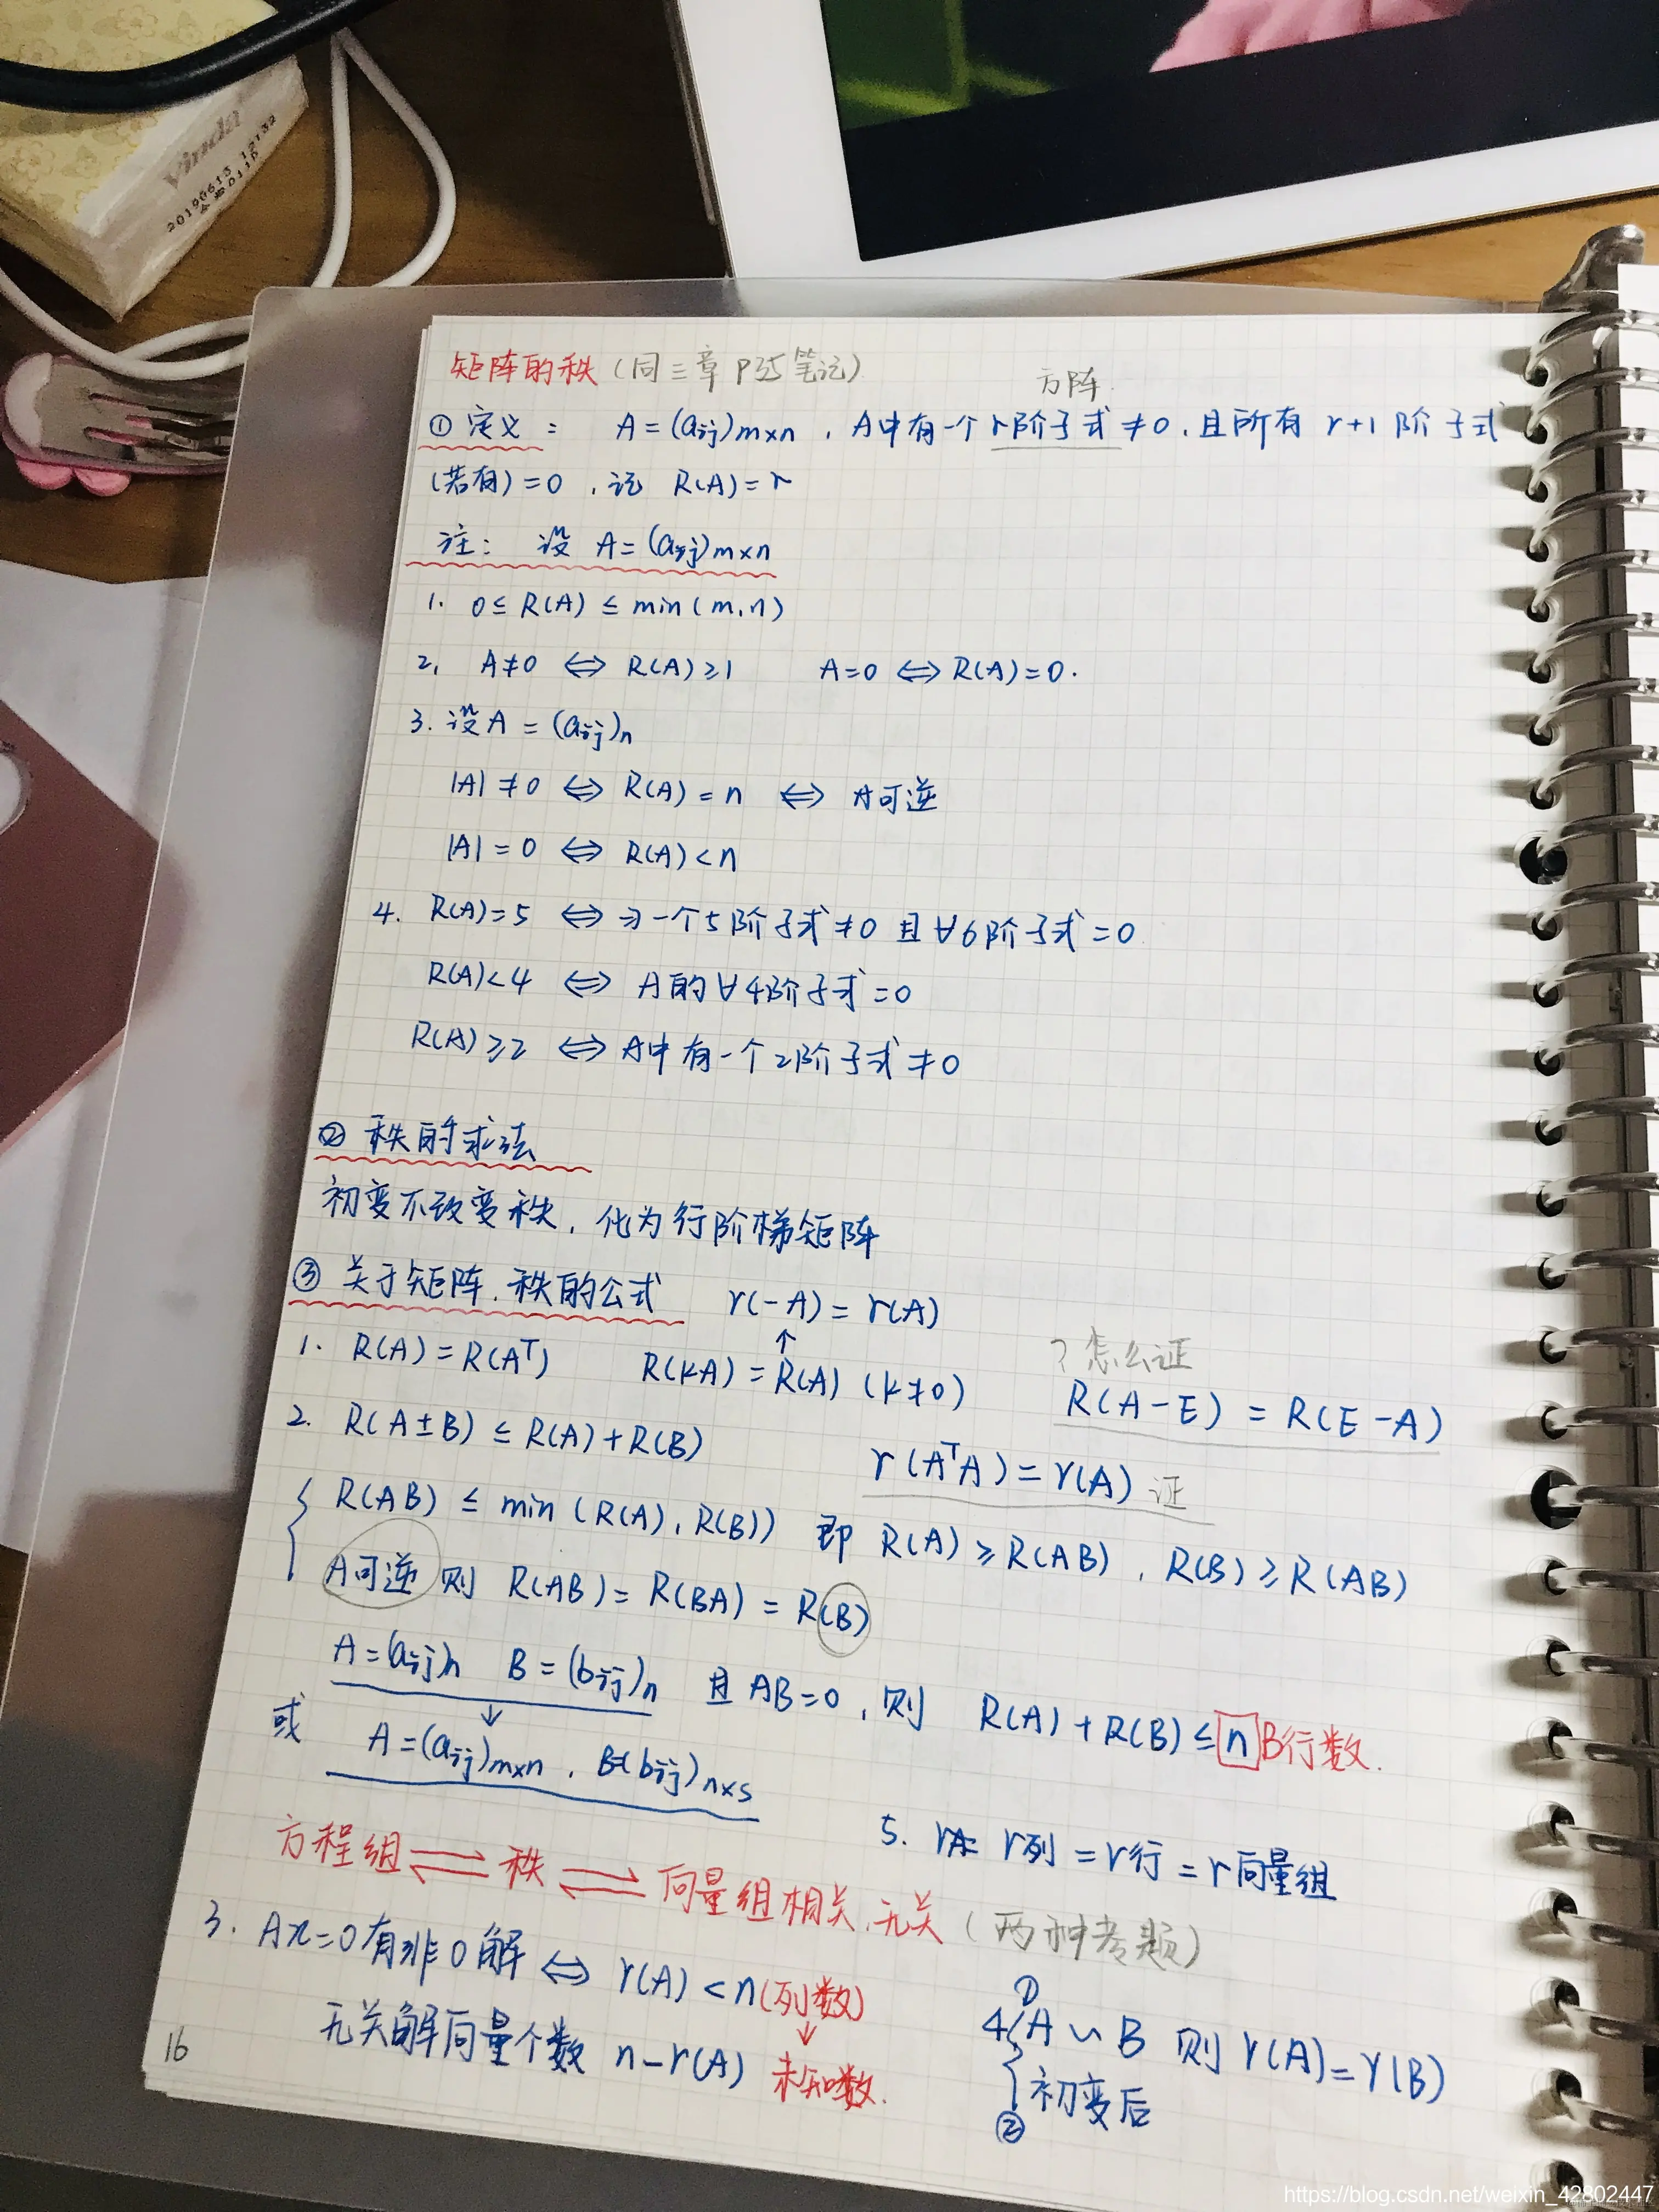 Vinda
20190613 12132
矩阵的秩(同三章P35笔记)
方阵
① 定义: A=(aij)m×n , A中有一个r阶子式≠0, 且所有 r+1 阶子式
(若有)=0 , 记 R(A)=r
注: 设 A=(aij)m×n
1. 0≤R(A)≤min(m,n)
2. A≠0 ⇔ R(A)≥1 A=0 ⇔ R(A)=0.
3. 设A=(aij)n
|A|≠0 ⇔ R(A)=n ⇔ A可逆
|A|=0 ⇔ R(A)<n
4. R(A)=5 ⇔ ∃一个5阶子式≠0 且∀6阶子式=0
R(A)<4 ⇔ A的∀4阶子式=0
R(A)≥2 ⇔ A中有一个2阶子式≠0
② 秩的求法
初变不改变秩, 化为行阶梯矩阵
③ 关于矩阵.秩的公式 r(-A)=r(A)
↑
1. R(A)=R(Aᵀ) R(kA)=R(A) (k≠0)
?怎么证
R(A-E)=R(E-A)
2. R(A±B)≤R(A)+R(B)
r(AᵀA)=r(A) 证
R(AB)≤min(R(A),R(B)) 即 R(A)≥R(AB) , R(B)≥R(AB)
A可逆 则 R(AB)=R(BA)=R(B)
A=(aij)n B=(bij)n 且AB=0 , 则 R(A)+R(B)≤n B行数.
↓
或 A=(aij)m×n , B=(bij)n×s
5. rA= r列=r行=r向量组
方程组⇌秩⇌向量组相关.无关(两种考题)
3. Ax=0有非0解 ⇔ r(A)<n(列数)
↓
无关解向量个数 n-r(A) 未知数.
4. ① A∽B 则 r(A)=r(B)
② 初变后
16
https://blog.csdn.net/weixin_42802447